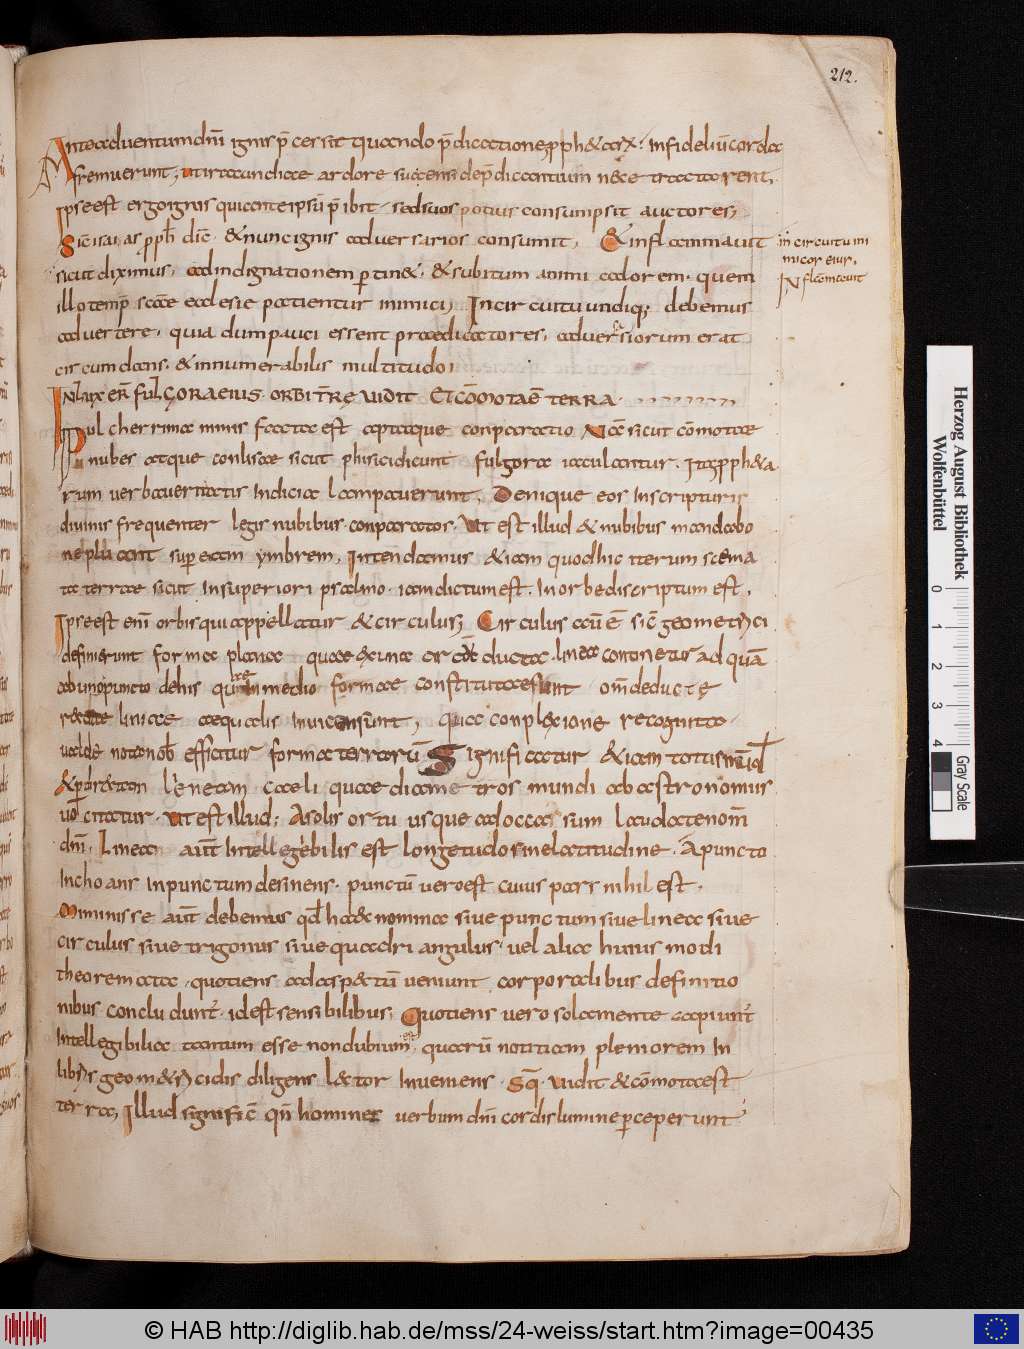 212.
Anteadventum dn̄i ignis p̄cessit quando p̄dicatione pph&arx. Infideliū corda
fremuerunt, ut iracundiae ardore succensi dep̄dicantium nece tractarent,
Ipse est ergo ignis qui ante ipsū p̄ibit sed suos potius consumpsit auctores,
Sic isaias ppħ dic̄ &nunc ignis adversarios consumit, &inflammavit
in circuitu inimicos eius,
Inflammavit
sicut diximus, ad indignationem ptin&, &subitum animi calorem. quem
illo temp̄ scāe ecclesie patientur inimici, In circuitu undiq; debemus
advertere, quia dum pauci essent praedicatores, adversariorum erat
circumdans, &innumerabilis multitudo,
INluxer̄ fulgora eius orbi tr̄rę vidit et cōmota ē terra
Pulcherrima nimis facta est aptaque conparatio Nā sicut cōmotae
nubes atque conlisae sicut phisici dicunt fulgora iaculantur. Ita pph&a
rum verba veritatis indicia lampaverunt, Denique eos in scripturis
divinis frequenter legis nubibus conparatos, Ut est illud & nubibus mandabo
ne pluant super eam ymbrem, Intendamus &iam quod hic iterum scema
ta terrae sicut in superiori psalmo iam dictum est. In orbe discriptum est,
Ipse est enī orbis qui appellatur &circulus, Circulus autē ē sic̄ geom&rici
definierunt forma plana quae sub una circūducta linea continetur ad quā
ab uno puncto de his quae in medio formae constitutae sunt om̄ deducte
rectae liniae aequalis invicem sunt, quae conplexione recognita
valde notanob̄ efficitur forma terrarū Significatur &iam totus mūd
lēneam caeli quae diametros mundi ab astronomis
vocitatur. Ut est illud, A solis ortu usque ad occasum laudate nom̄
dn̄i, Linea aut̄ intellegebilis est longetudo sine latitudine, A puncto
inchoans in punctum desinens, punctū vero est cuius pars nihil est,
Miminisse aut̄ debemus qđ haec nomina sive punctum sive linea sive
circulus sive trigonus sive quadriangulus vel alia huius modi
theoremata, quotiens ad aspectū veniunt corporalibus definitio
nibus concludunt̄, id est sensibilibus, Quotiens vero sola mente capiunt̄
intellegibilia tantum esse non dubium quarū notitiam pleniorem in
libris geom&ricidis diligens lector inveniens. Sq̄ vidit &cōmota est
terra, Illud significc̄ qn̄ homines verbum dn̄i cordis lumine perceperunt
Herzog August Bibliothek
Wolfenbüttel
0 1 2 3 4
Gray Scale
© HAB http://diglib.hab.de/mss/24-weiss/start.htm?image=00435